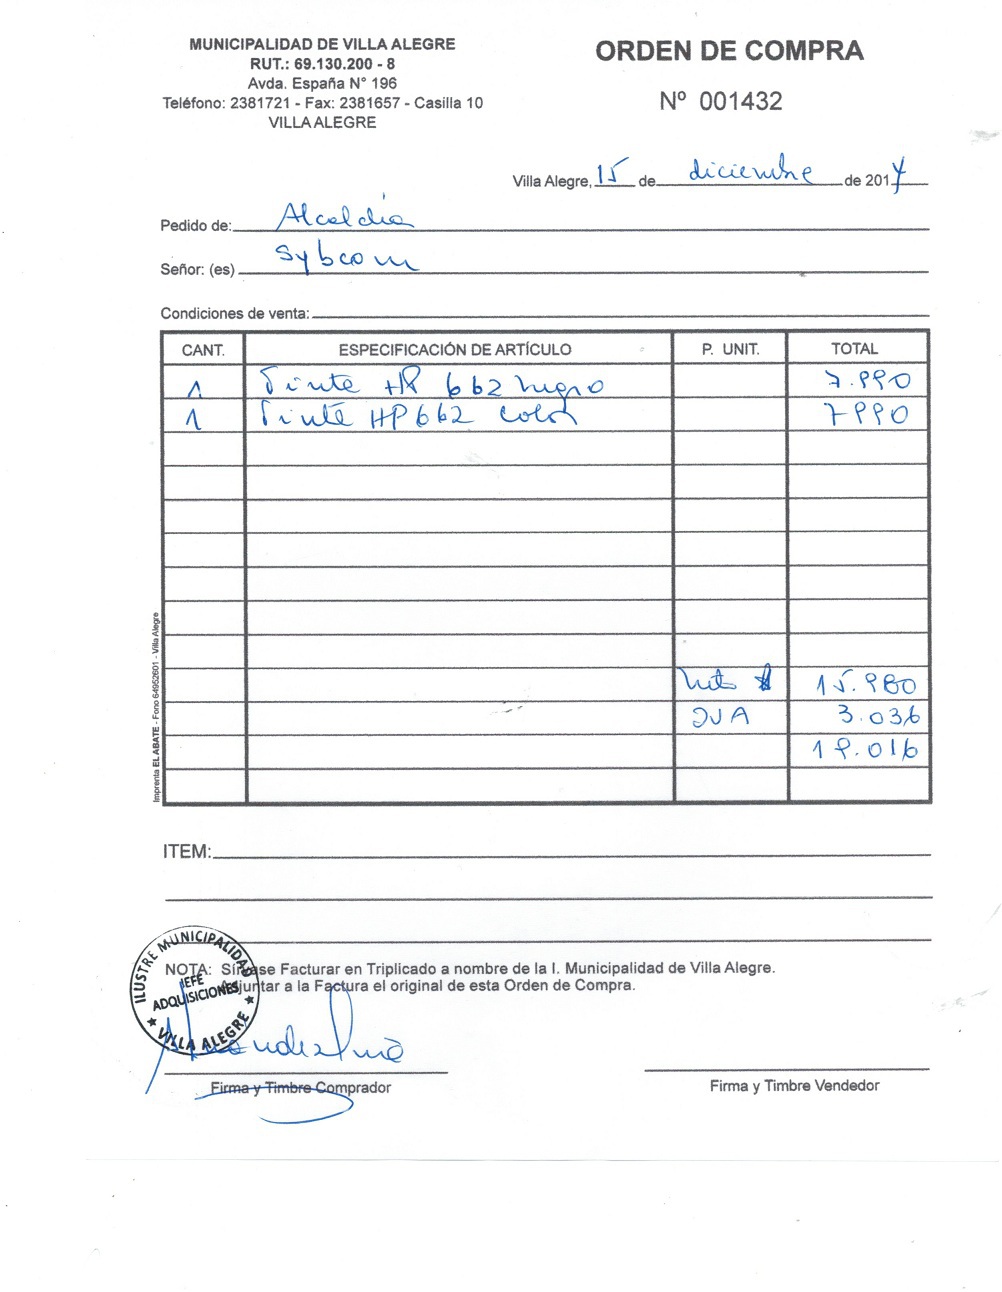 MUNICIPALIDAD DE VILLA ALEGRE
RUT.: 69.130.200 - 8
Avda. España N° 196
Teléfono: 2381721 - Fax: 2381657 - Casilla 10
VILLA ALEGRE
ORDEN DE COMPRA
Nº 001432
Villa Alegre, 15 de diciembre de 2014
Pedido de: Alcaldia
Señor: (es) Sybcom
Condiciones de venta:
CANT. ESPECIFICACIÓN DE ARTÍCULO P. UNIT. TOTAL
1 Tinta HP 662 negro 7.990
1 Tinta HP 662 color 7990
Neto $ 15.980
IVA 3.036
19.016
Imprenta EL ABATE - Fono 64952601 - Villa Alegre
ITEM:
NOTA: Sírvase Facturar en Triplicado a nombre de la I. Municipalidad de Villa Alegre.
Adjuntar a la Factura el original de esta Orden de Compra.
ILUSTRE MUNICIPALIDAD
JEFE
ADQUISICIONES
★ VILLA ALEGRE ★
Firma y Timbre Comprador
Firma y Timbre Vendedor